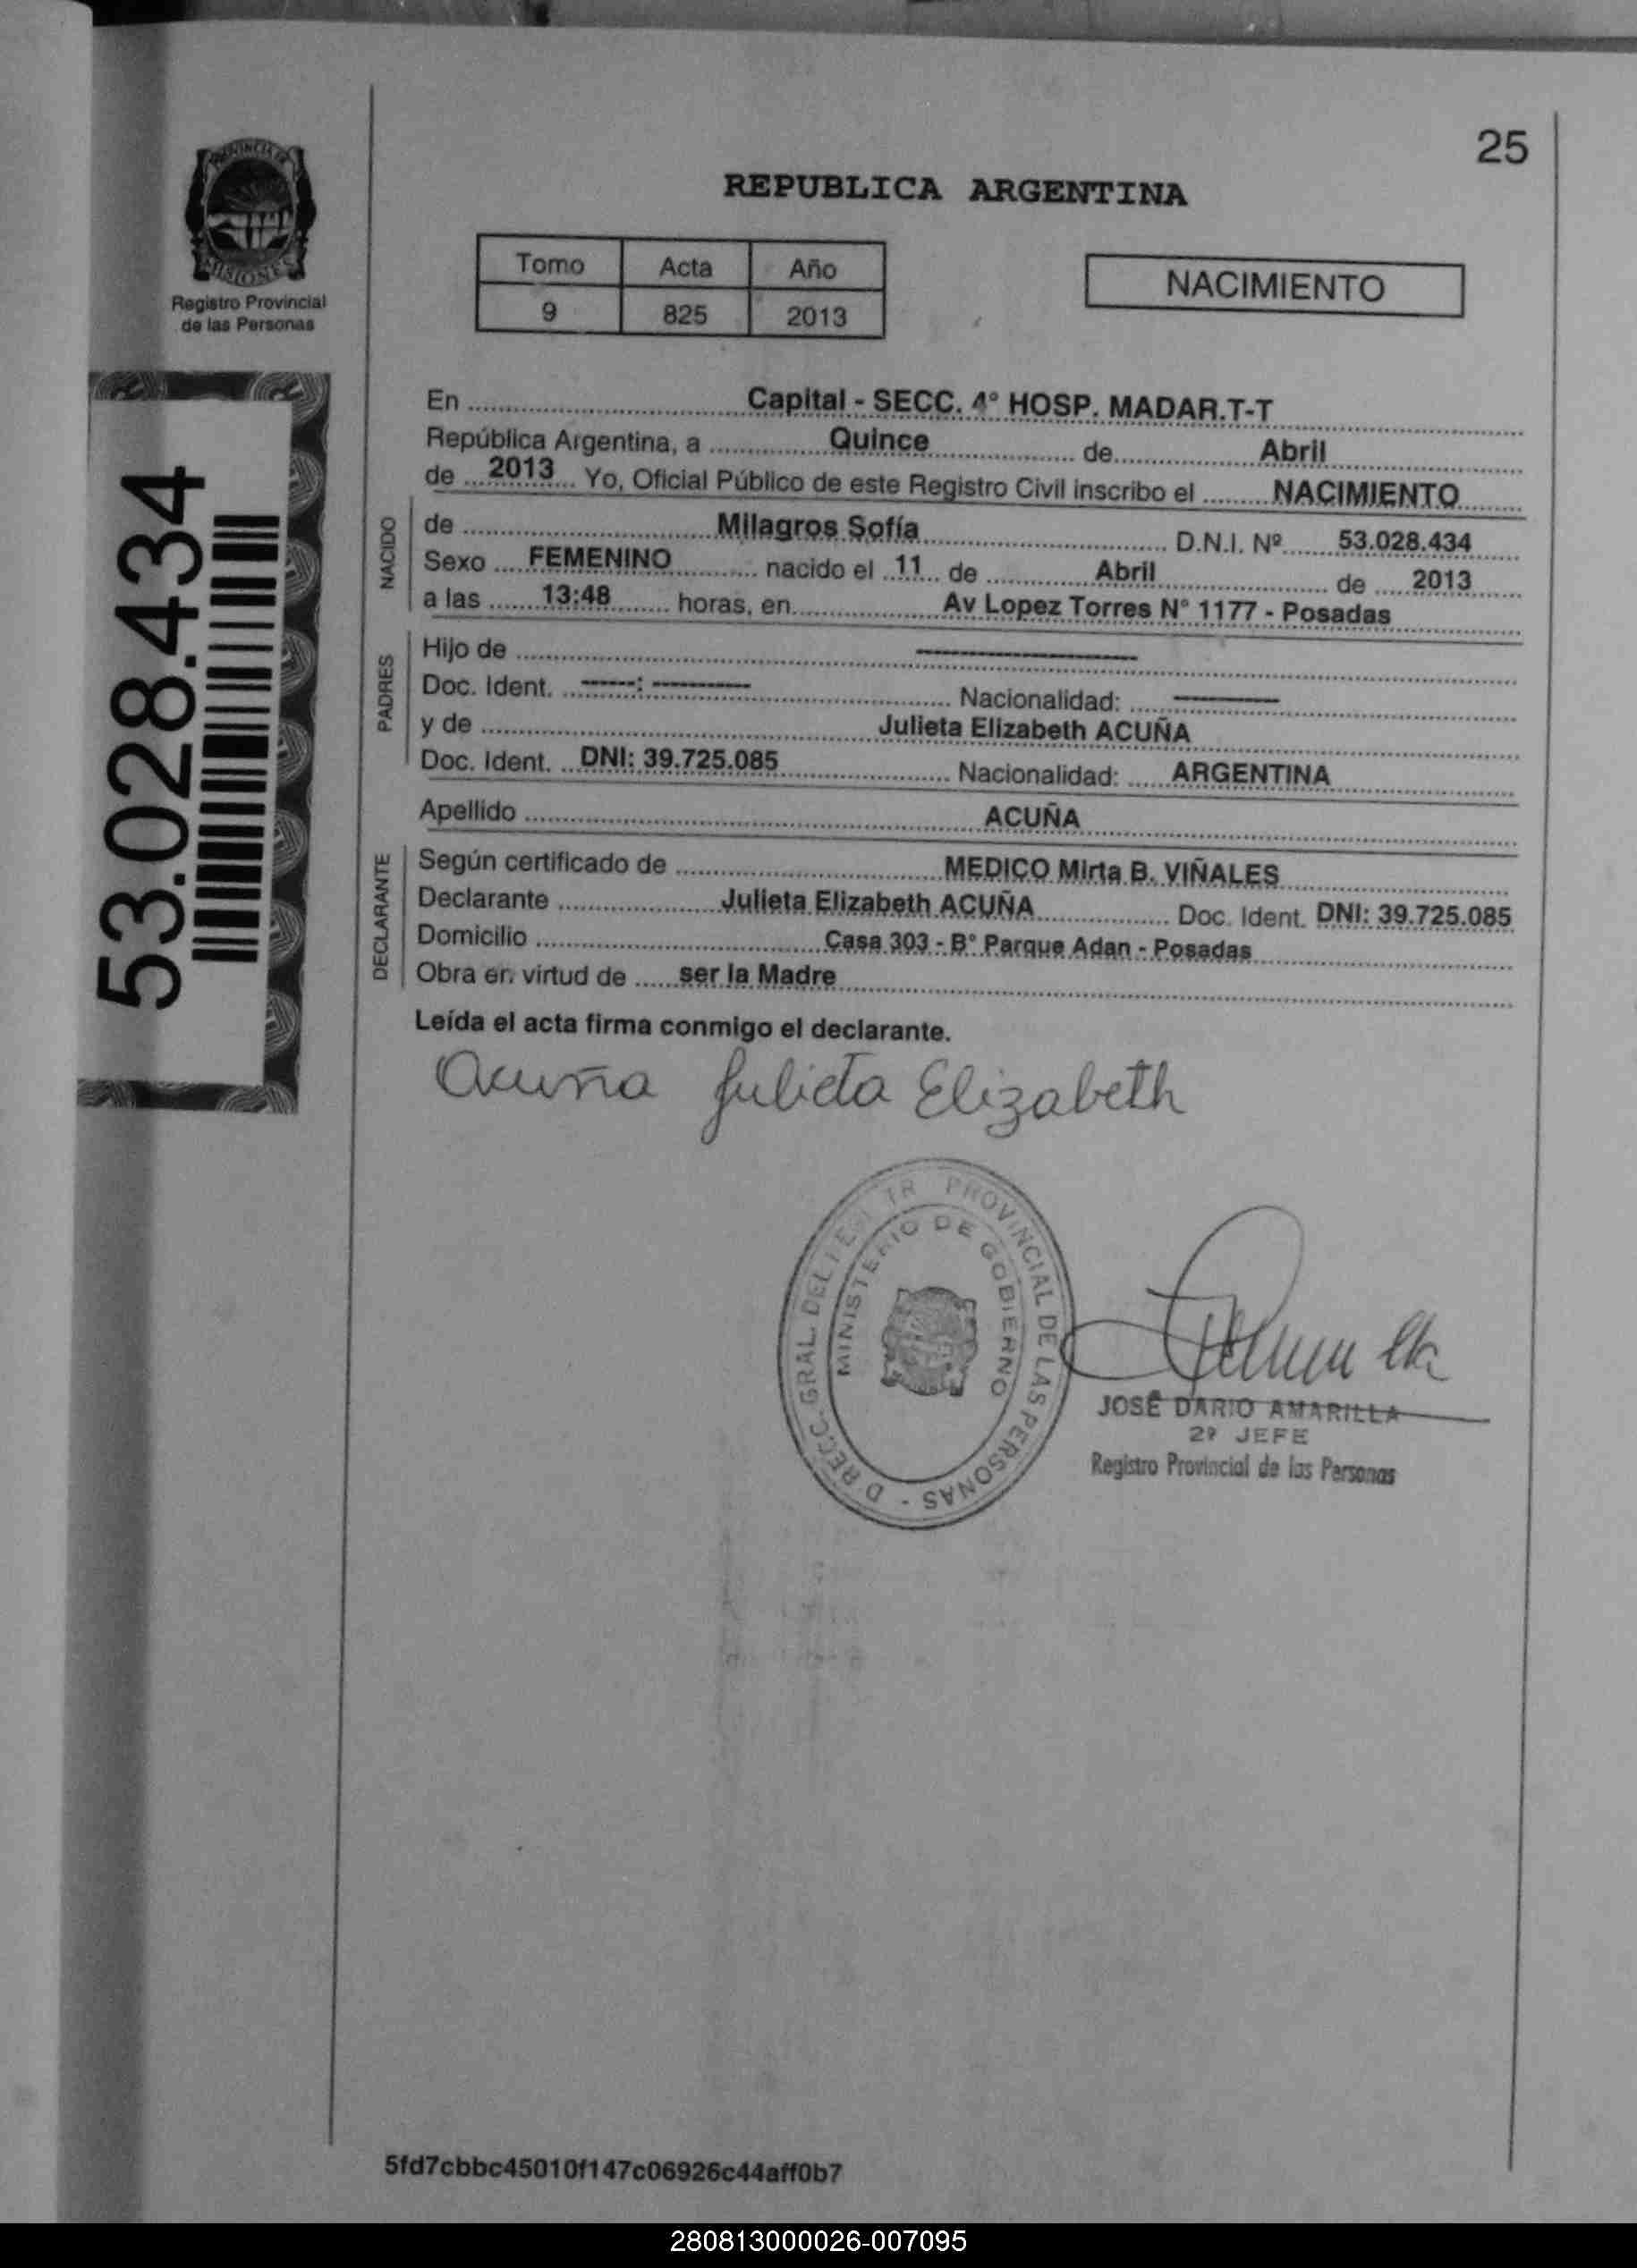 25
PROVINCIA DE
MISIONES
Registro Provincial
de las Personas
REPUBLICA ARGENTINA
Tomo Acta Año
9 825 2013
NACIMIENTO
53.028.434
En ... Capital - SECC. 4° HOSP. MADAR.T-T
República Argentina, a ... Quince ... de ... Abril
de ... 2013 ... Yo, Oficial Público de este Registro Civil inscribo el ... NACIMIENTO
NACIDO
de ... Milagros Sofía ... D.N.I. Nº ... 53.028.434
Sexo ... FEMENINO ... nacido el ... 11 ... de ... Abril ... de ... 2013
a las ... 13:48 ... horas, en ... Av Lopez Torres N° 1177 - Posadas
PADRES
Hijo de ... --------------------
Doc. Ident. ... ------: ---------- ... Nacionalidad: ... ----------
y de ... Julieta Elizabeth ACUÑA
Doc. Ident. ... DNI: 39.725.085 ... Nacionalidad: ... ARGENTINA
Apellido ... ACUÑA
DECLARANTE
Según certificado de ... MEDICO Mirta B. VIÑALES
Declarante ... Julieta Elizabeth ACUÑA ... Doc. Ident. DNI: 39.725.085
Domicilio ... Casa 303 - B° Parque Adan - Posadas
Obra en virtud de ... ser la Madre
Leída el acta firma conmigo el declarante.
Acuña Julieta Elizabeth
PROVINCIAL DE LAS PERSONAS -
GRAL. DEL
MINISTERIO DE GOBIERNO
JOSÉ DARIO AMARILLA
2º JEFE
Registro Provincial de las Personas
5fd7cbbc45010f147c06926c44aff0b7
280813000026-007095